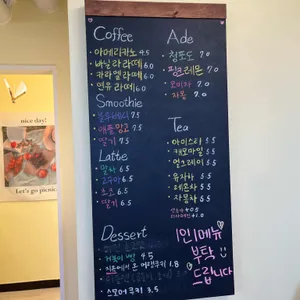 Coffee
아메리카노 4.5
바닐라라떼 6.0
카라멜라떼 6.0
연유라떼 6.0
Smoothie
블루베리 7.5
애플망고 7.5
딸기 7.5
Latte
말차 6.5
고구마 6.5
초코 6.5
딸기 6.5
Dessert
4.5
1.8
스모어쿠키 3.5
Ade
청포도 7.0
핑크레몬 7.0
오미자 7.0
자몽 7.0
Tea
아이스티 5.5
캐모마일 5.5
얼그레이 5.5
유자차 5.5
레몬차 5.5
자몽차 5.5
+0.5
+1.0
1인 1메뉴
부탁
드립니다
nice day!
Let's go picnic